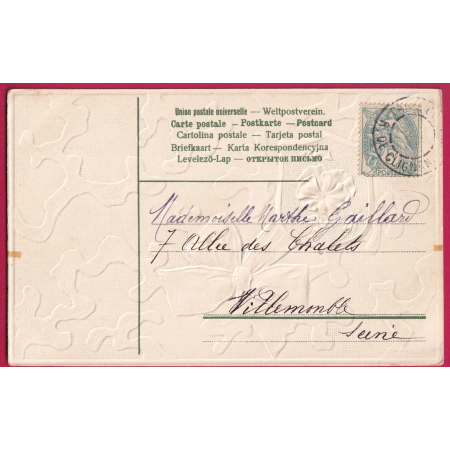 Union postale universelle — Weltpostverein.
Carte postale — Postkarte — Postcard
Cartolina postale — Tarjeta postal
Briefkaart — Karta Korespondencyjna
Levelező-Lap — ОТКРЫТОЕ ПИСЬМО
Mademoiselle Marthe Gaillard
7 Allée des Chalets
Villemomble
Seine